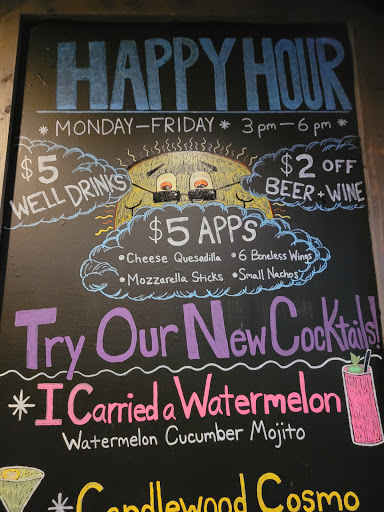 HAPPY HOUR
* MONDAY–FRIDAY * 3pm–6pm *
$5
WELL DRINKS
$2 OFF
BEER + WINE
$5 APPS
• Cheese Quesadilla • 6 Boneless Wings
• Mozzarella Sticks • Small Nachos
Try Our New Cocktails!
* I Carried a Watermelon
Watermelon Cucumber Mojito
* Candlewood Cosmo